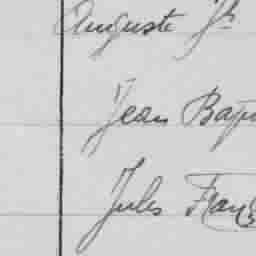 Auguste Jh
Jean Bap
Jules Fran